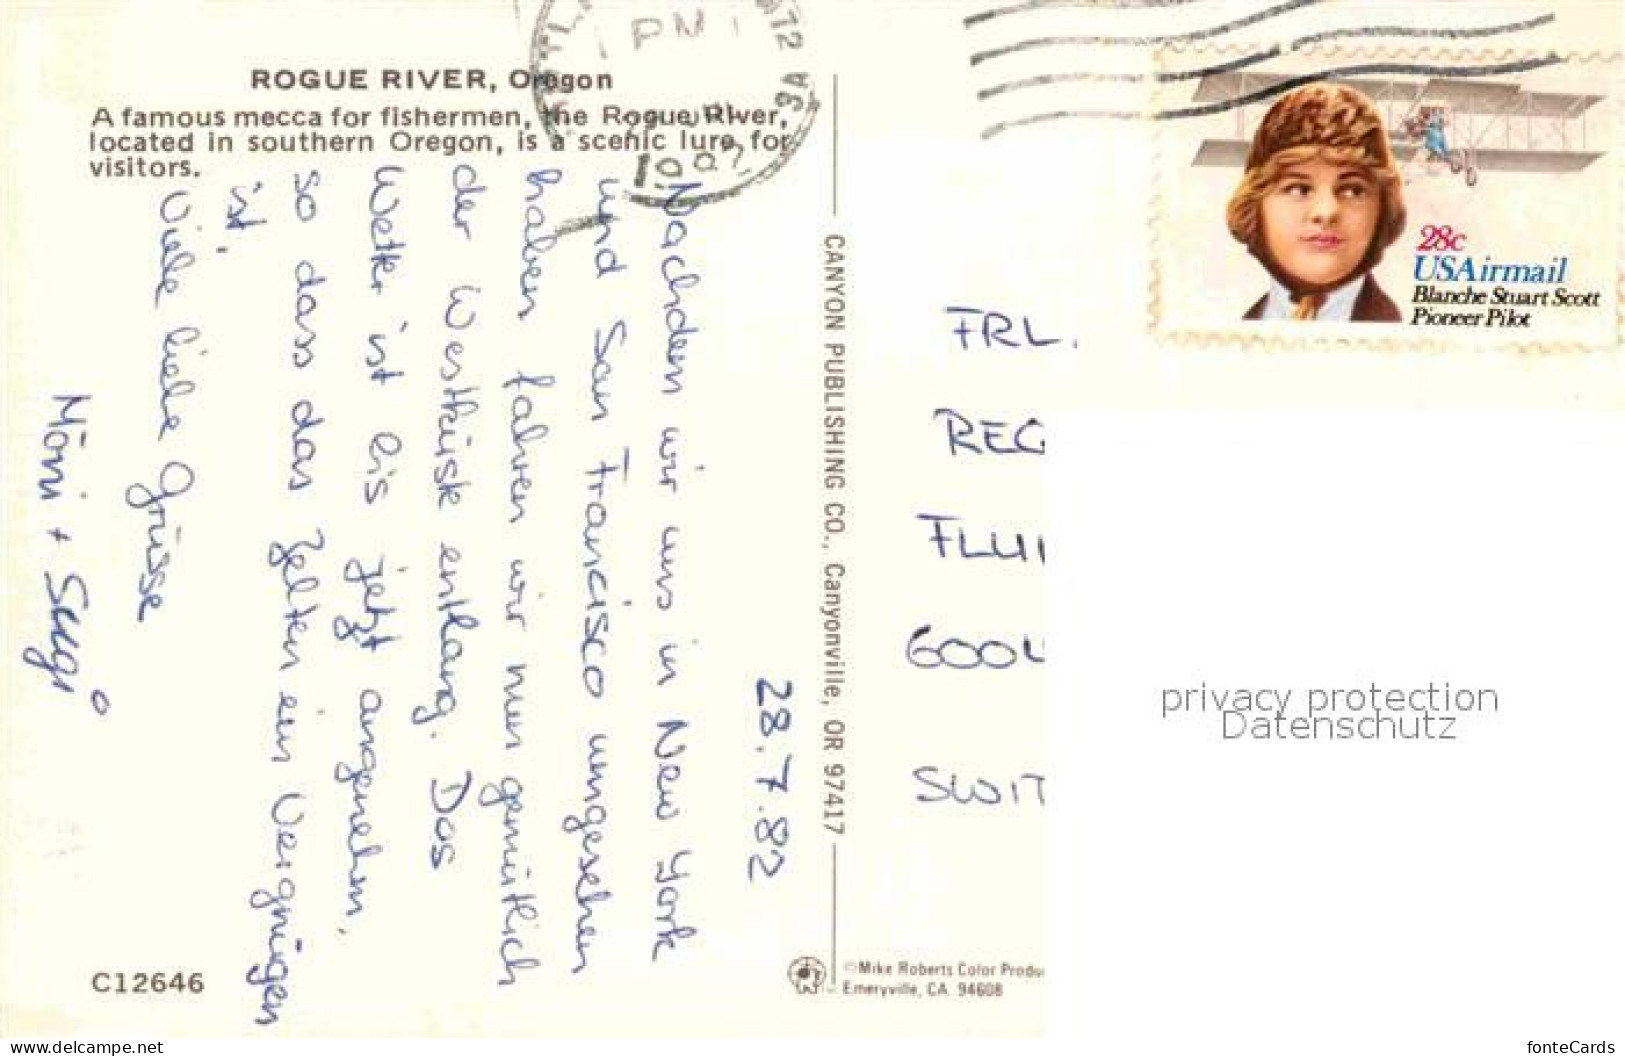 ROGUE RIVER, Oregon
A famous mecca for fishermen, the Rogue River,
located in southern Oregon, is a scenic lure for
visitors.
28.7.82
Nachdem wir uns in New York
und San Francisco umgesehen
haben fahren wir nun gemütlich
der Westküste entlang. Das
Wetter ist bis jetzt angenehm,
so dass das Zelten ein Vergnügen
ist.
Viele liebe Grüsse
CANYON PUBLISHING CO., Canyonville, OR 97417
C12646
PM
28c
USAirmail
Blanche Stuart Scott
Pioneer Pilot
FRL.
REG
FLUI
SWIT
privacy protection
Datenschutz
©Mike Roberts Color Produ
Emeryville, CA 94608
www.delcampe.net
fonteCards